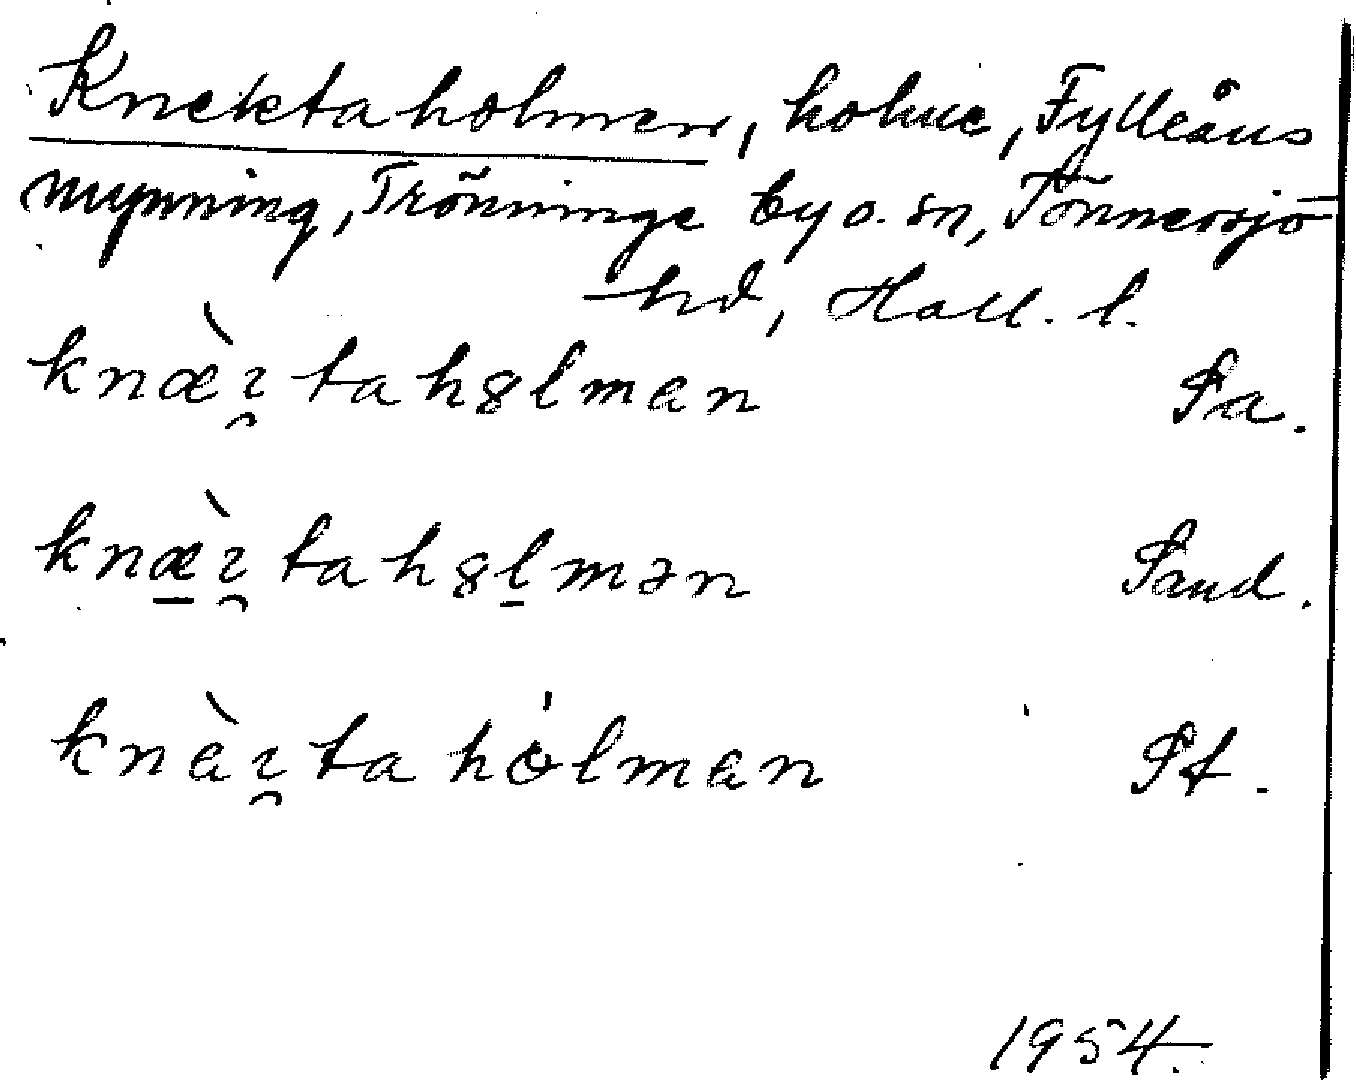 Knektaholmen, holme, Fylleåns
mynning, Trönninge by o. sn, Tönnersjö
hd, Hall. l.
knæ̀ɪ̯tahꝏlmen Pa.
knæ̱̀ɪ̯tahꝏḻmən Pand.
knèɪ̯tahólmen Pf.
1954.